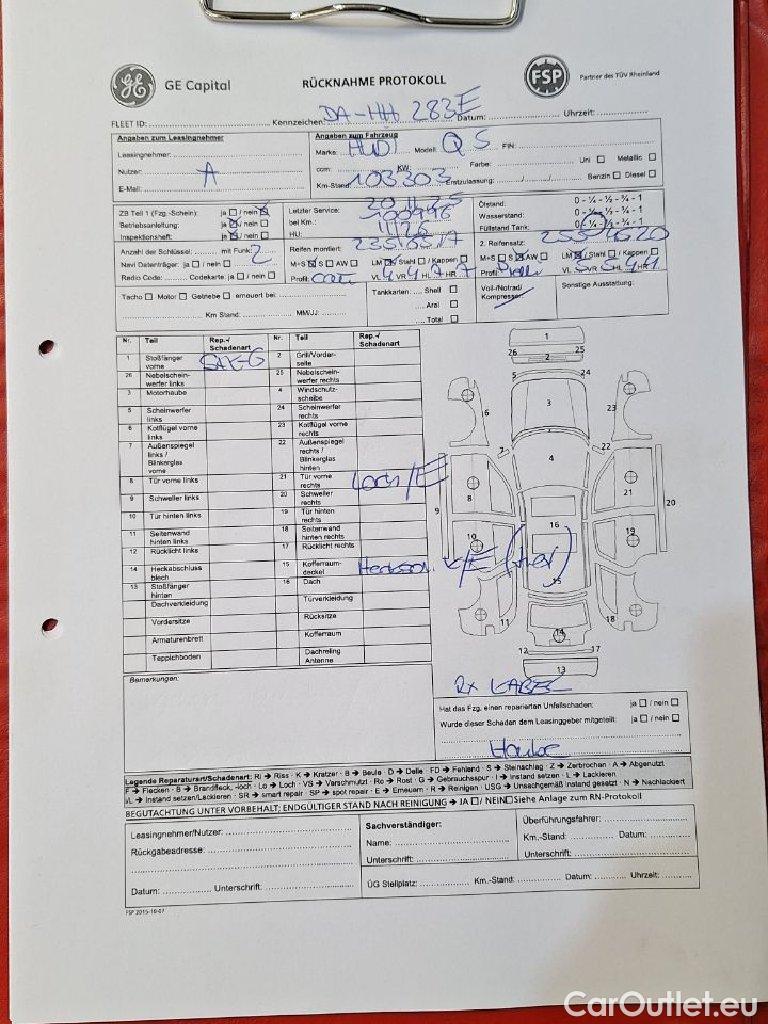 GE Capital
RÜCKNAHME PROTOKOLL
FSP Partner des TÜV Rheinland
FLEET ID: Kennzeichen: DA-HH 283E Datum: Uhrzeit:
Angaben zum Leasingnehmer
Angaben zum Fahrzeug
Leasingnehmer:
Marke: AUDI Modell: Q5 FIN:
Nutzer: A
ccm: KW: Farbe: Uni Metallic
E-Mail:
Km-Stand: 103303 Erstzulassung: Benzin Diesel
ZB Teil 1 (Fzg.-Schein): ja / nein
Betriebsanleitung: ja / nein
Inspektionsheft: ja / nein
Letzter Service:
bei Km.:
HU: 11/26
Ölstand: 0 - ¼ - ½ - ¾ - 1
Wasserstand: 0 - ¼ - ½ - ¾ - 1
Füllstand Tank: 0 - ¼ - ½ - ¾ - 1
Anzahl der Schlüssel: mit Funk: 2
Navi Datenträger: ja / nein
Radio Code: Codekarte: ja / nein
Reifen montiert: 235/65/17
M+S S AW LM / Stahl / Kappen
Profil: VL 4 VR 4 HL 7 HR 7
2. Reifensatz: 255 45 20
M+S S AW LM / Stahl / Kappen
Profil: VL 5 VR 5 HL 4 HR 4
Tacho Motor Getriebe erneuert bei:
Km Stand: MM/JJ:
Tankkarten: Shell
Aral
Total
Voll-/Notrad/
Kompressor
Sonstige Ausstattung:
Nr. Teil Rep.-/ Schadenart Nr. Teil Rep.-/ Schadenart
1 Stoßfänger vorne 2 Grill/Vorderseite
26 Nebelscheinwerfer links 25 Nebelscheinwerfer rechts
3 Motorhaube 4 Windschutzscheibe
5 Scheinwerfer links 24 Scheinwerfer rechts
6 Kotflügel vorne links 23 Kotflügel vorne rechts
7 Außenspiegel links / Blinkerglas vorne 22 Außenspiegel rechts / Blinkerglas hinten
8 Tür vorne links 21 Tür vorne rechts Loch/E
9 Schweller links 20 Schweller rechts
10 Tür hinten links 19 Tür hinten rechts
11 Seitenwand hinten links 18 Seitenwand hinten rechts
12 Rücklicht links 17 Rücklicht rechts
14 Heckabschlussblech 15 Kofferraumdeckel
13 Stoßfänger hinten 16 Dach
Dachverkleidung Türverkleidung
Vordersitze Rücksitze
Armaturenbrett Kofferraum
Teppichboden Dachreling Antenne
Bemerkungen:
Hat das Fzg. einen reparierten Unfallschaden: ja / nein
Wurde dieser Schaden dem Leasinggeber mitgeteilt: ja / nein
Legende Reparaturart/Schadenart: RI → Riss · K → Kratzer · B → Beule · D → Delle · FD → Fehlend · S → Steinschlag · Z → Zerbrochen · A → Abgenutzt
F → Flecken · B → Brandfleck, -loch · Lo → Loch · VS → Verschmutzt · Ro → Rost · G → Gebrauchsspur · I → Instand setzen · L → Lackieren
I/L → Instand setzen/Lackieren · SR → smart repair · SP → spot repair · E → Erneuern · R → Reinigen · USG → Unsachgemäß instand gesetzt · N → Nachlackiert
BEGUTACHTUNG UNTER VORBEHALT; ENDGÜLTIGER STAND NACH REINIGUNG → JA / NEIN Siehe Anlage zum RN-Protokoll
Leasingnehmer/Nutzer:
Rückgabeadresse:
Datum: Unterschrift:
Sachverständiger:
Name:
Unterschrift:
Überführungsfahrer:
Km.-Stand: Datum:
Unterschrift:
ÜG Stellplatz: Km.-Stand: Datum: Uhrzeit:
FSP 2015-10-07
CarOutlet.eu